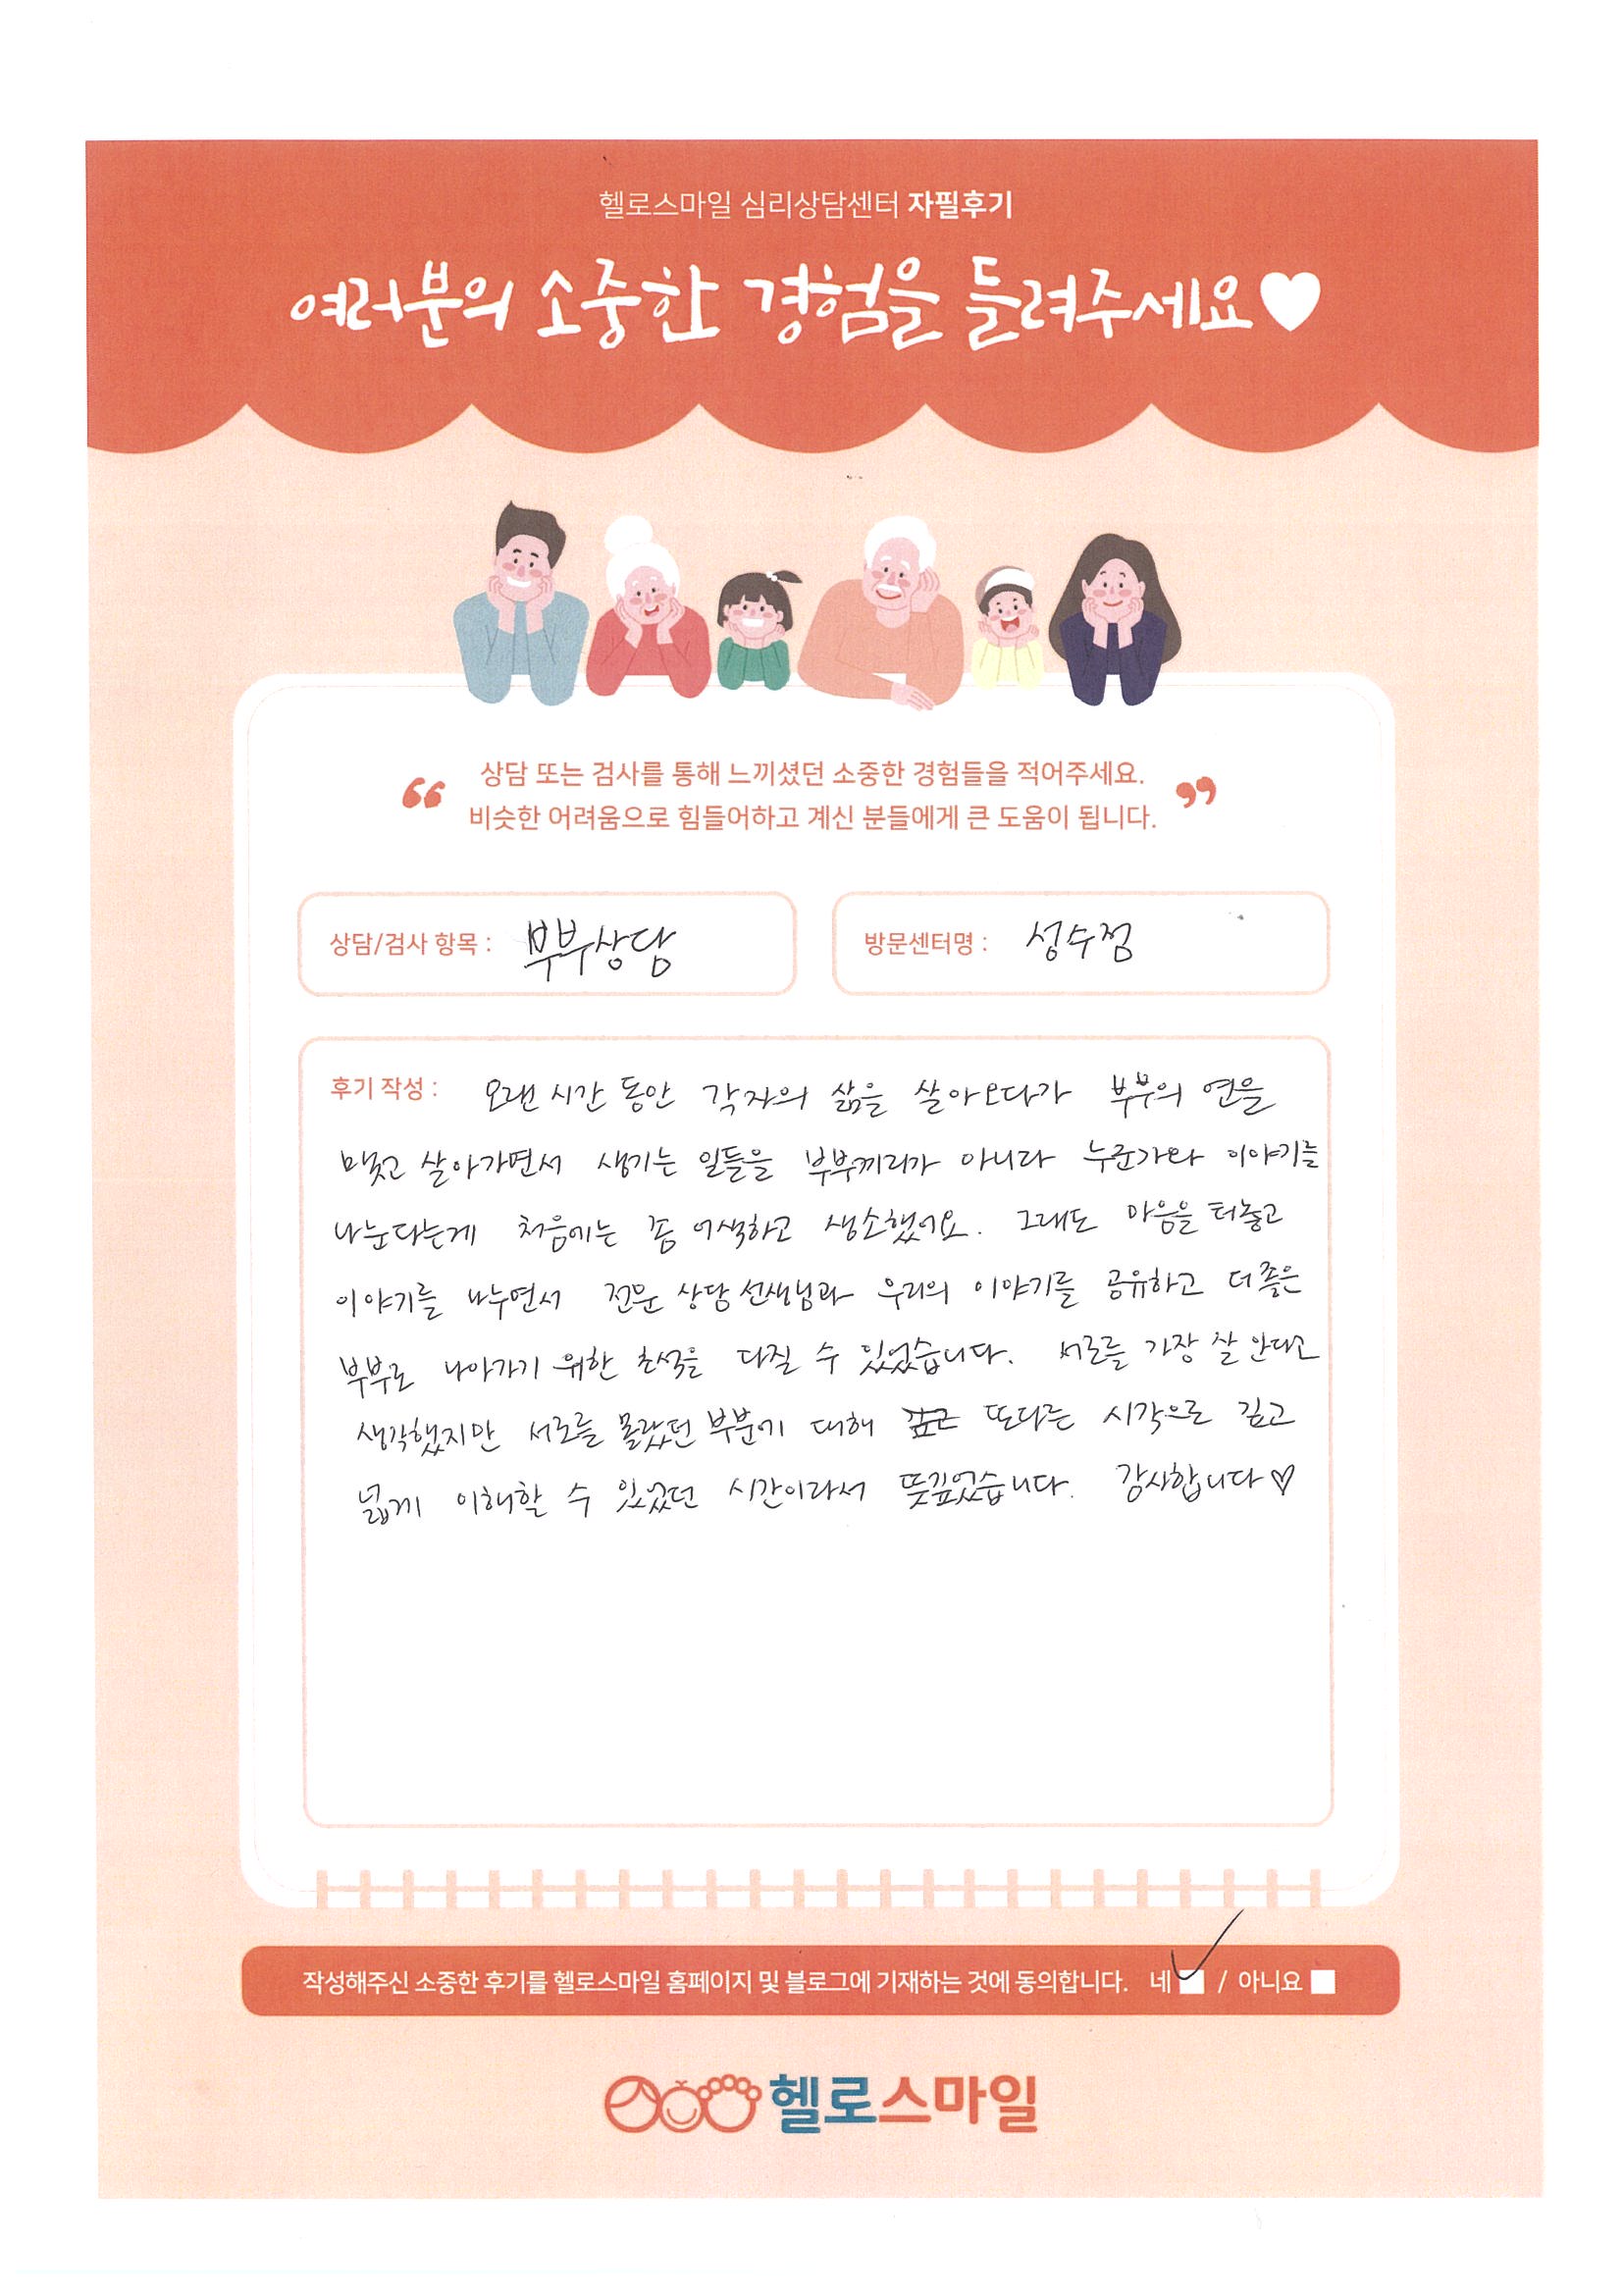 헬로스마일 심리상담센터 자필후기
여러분의 소중한 경험을 들려주세요♥
“ 상담 또는 검사를 통해 느끼셨던 소중한 경험들을 적어주세요. ”
비슷한 어려움으로 힘들어하고 계신 분들에게 큰 도움이 됩니다.
상담/검사 항목 : 부부상담
방문센터명 : 성수점
후기 작성 : 오랜 시간 동안 각자의 삶을 살아오다가 부부의 연을
맺고 살아가면서 생기는 일들을 부부끼리가 아니라 누군가와 이야기를
나눈다는게 처음에는 좀 어색하고 생소했어요. 그래도 마음을 터놓고
이야기를 나누면서 전문 상담 선생님과 우리의 이야기를 공유하고 더 좋은
부부로 나아가기 위한 초석을 다질 수 있었습니다. 서로를 가장 잘 안다고
생각했지만 서로를 몰랐던 부분에 대해 또다른 시각으로 깊고
넓게 이해할 수 있었던 시간이라서 뜻깊었습니다. 감사합니다♡
작성해주신 소중한 후기를 헬로스마일 홈페이지 및 블로그에 기재하는 것에 동의합니다. 네 ✓ / 아니요
헬로스마일